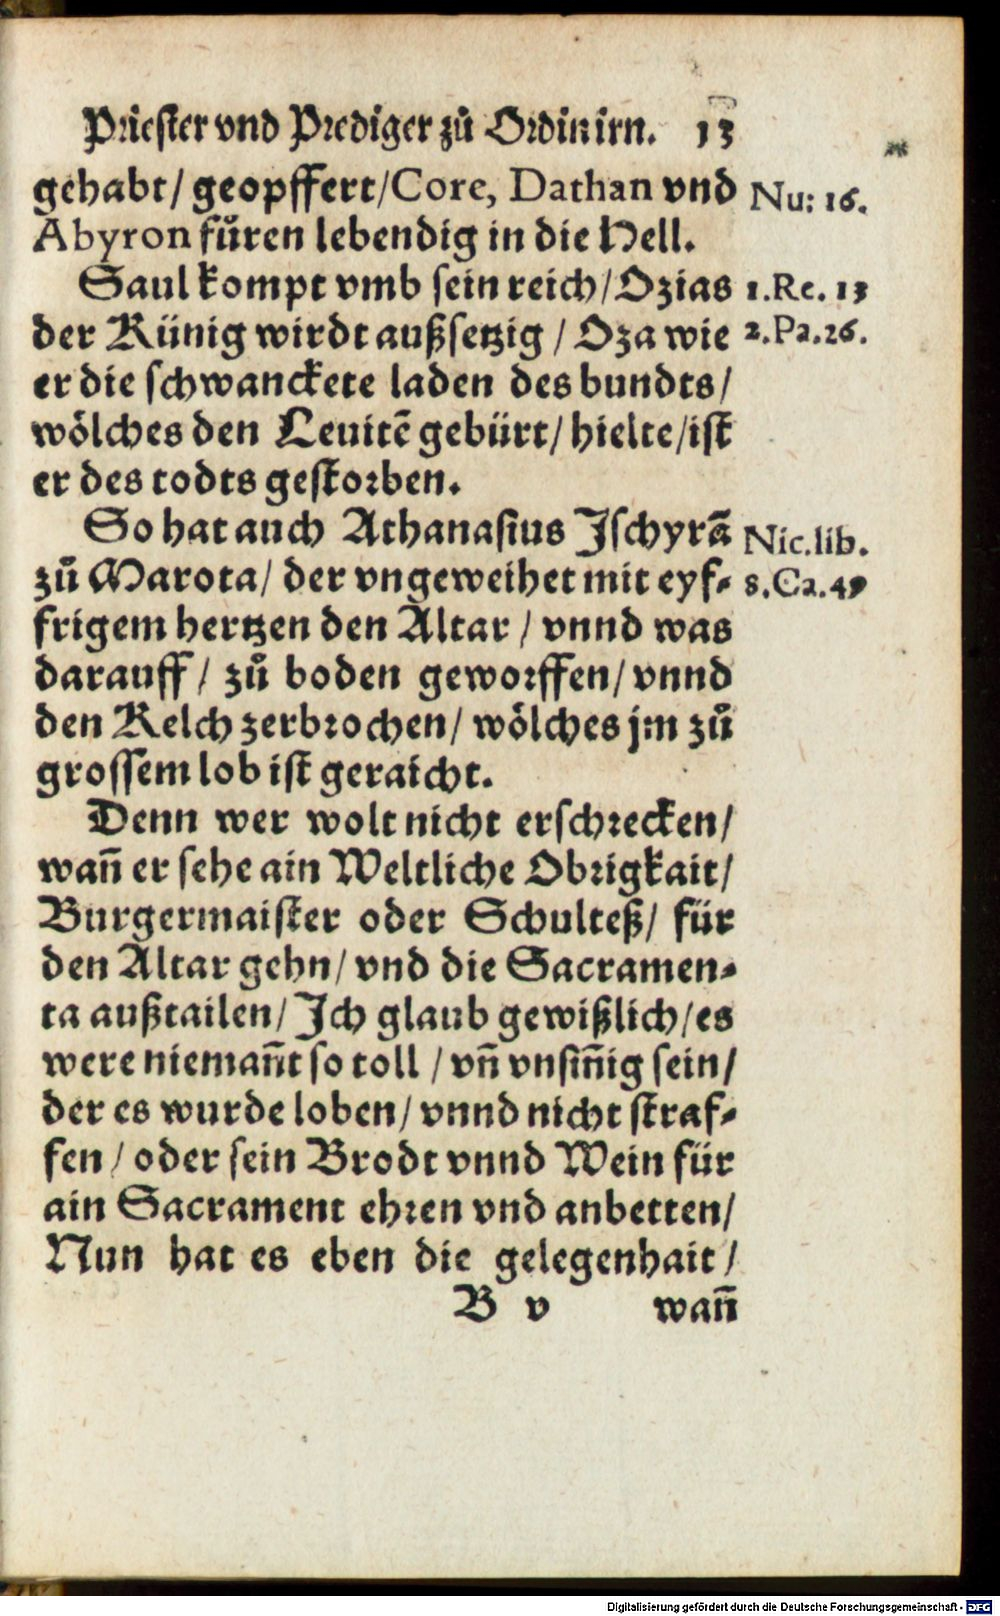 Priester vnd Prediger zů Ordinirn. 13
gehabt/ geopffert/Core, Dathan vnd
Nu: 16.
Abyron fůren lebendig in die Hell.
Saul kompt vmb sein reich/Ozias
1.Re. 13
der Künig wirdt außsetzig / Oza wie
2.Pa.26.
er die schwanckete laden des bundts/
wölches den Leuitē gebürt/ hielte/ist
er des todts gestorben.
So hat auch Athanasius Ischyrā
Nic.lib.
zů Marota/ der vngeweihet mit eyf-
8.Ca.49
frigem hertzen den Altar / vnnd was
darauff / zů boden geworffen/ vnnd
den Kelch zerbrochen/ wölches jm zů
grossem lob ist geraicht.
Denn wer wolt nicht erschrecken/
wañ er sehe ain Weltliche Obrigkait/
Burgermaister oder Schulteß/ für
den Altar gehn/ vnd die Sacramen-
ta außtailen/ Ich glaub gewißlich/es
were niemañt so toll / vñ vnsiñig sein/
der es wurde loben/ vnnd nicht straf-
fen / oder sein Brodt vnnd Wein für
ain Sacrament ehren vnd anbetten/
Nun hat es eben die gelegenhait /
B v wañ
Digitalisierung gefördert durch die Deutsche Forschungsgemeinschaft - DFG